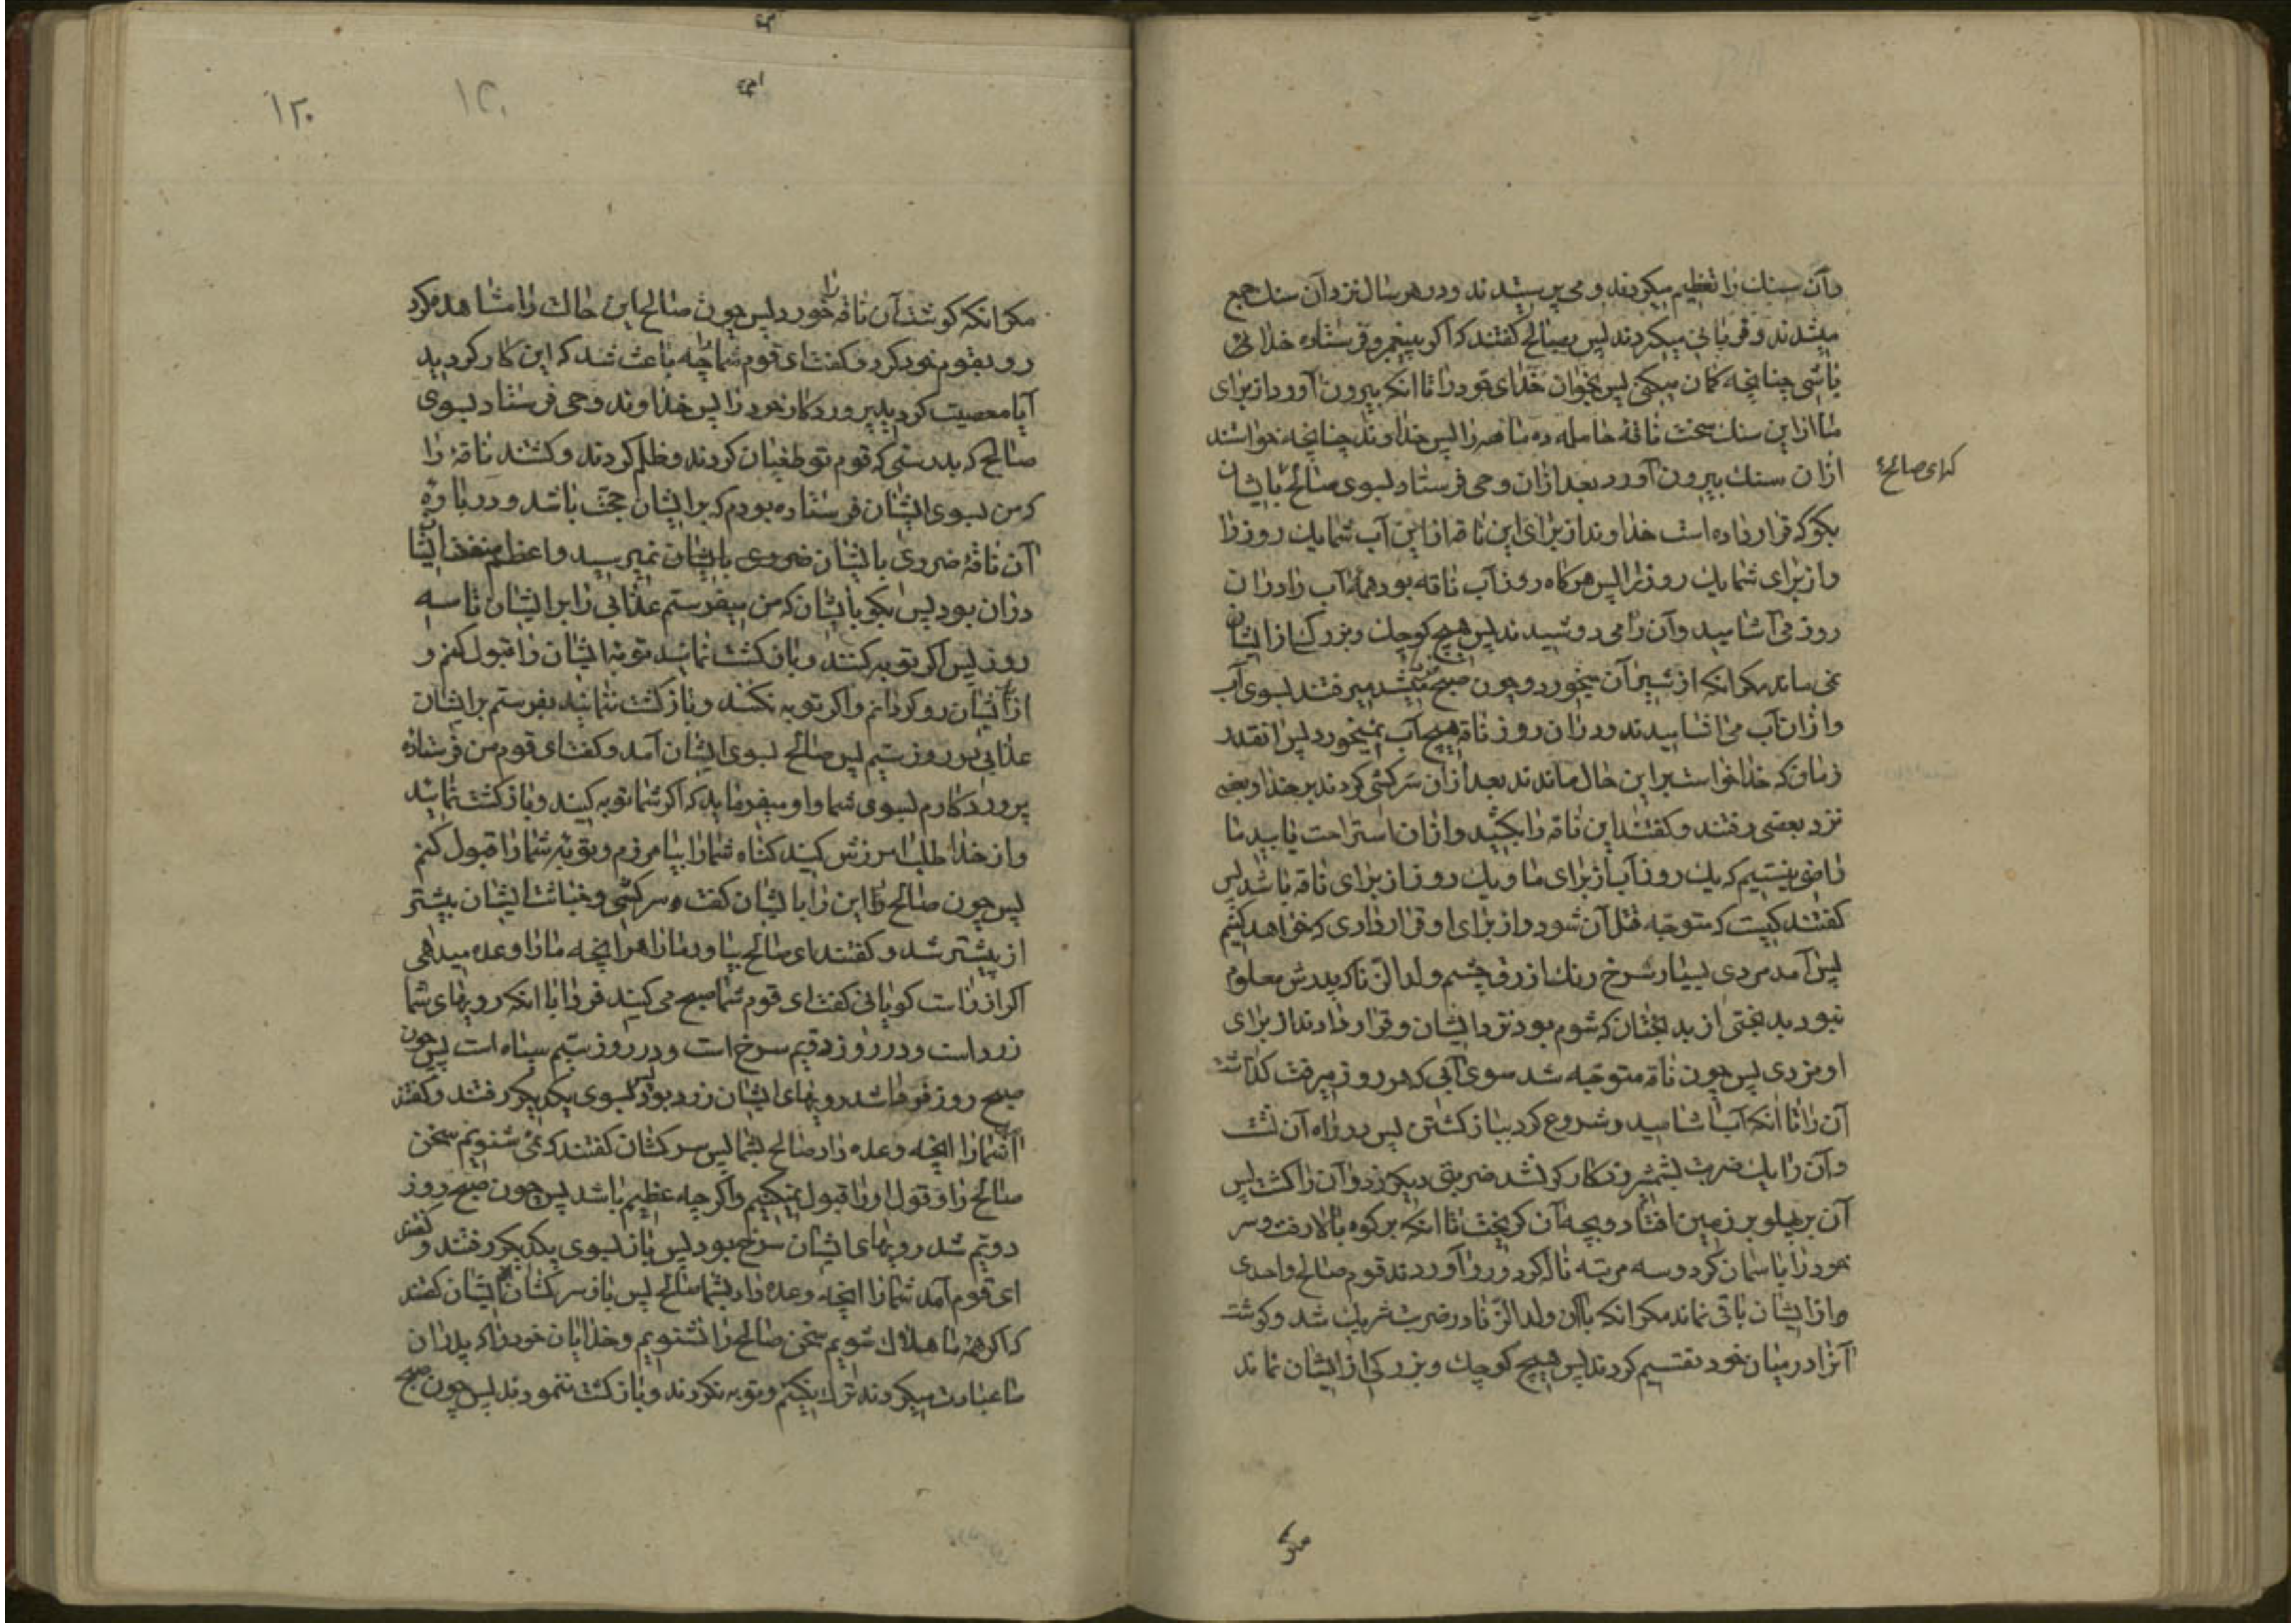 وآن سنك را تعظیم میکردند و می پرستیدند ودر هر سال نزد آن سنك جمع
میشدند و قربانی میکردند پس بصالح کفتند که اکر پیغمبر و فرستاده خدائی
باشی چنانچه کمان میکنی پس بخوان خدای خود را تا آنکه بیرون آورد از برای
ما از این سنك سخت ناقۀ حامله ده ماهه را پس خداوند چنانچه خواستند
ازان سنك بیرون آورد بعد ازان وحی فرستاد بسوی صالح باایشان
که ای صالح ع
بکو که قرار داده است خداوند از برای این ناقه از این آب شما یك روز را
واز برای شما یك روز را پس هرکاه روز آب ناقه بود همۀ آب را دران
روز می آشامید وآن را می دوشیدند پس هیچ کوچك وبزرك از ایشان
نمی ماند مکر انکه از شیر آن میخورد وچون صبح میشد میرفتند بسوی آب
وازان آب می اشامیدند ودران روز ناقه هیچ آب نمیخورد پس انقدر
زمان که خدا خواست براین حال ماندند بعد ازان سرکشی کردند بر خدا وبعضی
نزد بعضی رفتند وکفتند این ناقه را بکشید وازان استراحت یابید ما
راضی نیستیم که یك روز آب از برای ما ویك روز از برای ناقه باشد پس
کفتند کیست که متوجه قتل آن شود واز برای او قراردادی که خواهد کنیم
پس آمد مردی بسیار سرخ رنك ازرق چشم ولد الزنا که پدرش معلوم
نبود بدبختی از بدبختان که شوم بود نزد ایشان وقرار دادند از برای
او مزدی پس چون ناقه متوجه شد سوی آبی که هر روز میرفت کذاشت
آن را تا انکه آب اشامید وشروع کرد بباز کشتن پس در راه آن نشست
وآن را یك ضربت بشمشیر زد کارکر نشد ضربتی دیکر زد وآن را کشت پس
آن بر پهلو بر زمین افتاد وبچه آن کریخت تا انکه بر کوه بالا رفت وسر
خود را بآسمان کرد وسه مرتبه ناله کرد ورو آوردند قوم صالح واحدی
از ایشان باقی نماند مکر انکه باآن ولد الزنا در ضربت شریك شد وکوشت
آنرا در میان خود تقسیم کردند پس هیچ کوچك وبزرکی از ایشان نماند
مکر
۱۲۰
۱۲۰
مکر انکه کوشت آن ناقه را خورد پس چون صالح این حالت را مشاهده کرد
رو بقوم خود کرد وکفت ای قوم شما را چه باعث شد که این کار کردید
آیا معصیت کردید پروردکار خود را پس خداوند وحی فرستاد بسوی
صالح که بدرستی که قوم تو طغیان کردند وظلم کردند وکشتند ناقۀ را
که من بسوی ایشان فرستاده بودم که بر ایشان حجت باشد ودر باره
آن ناقۀ ضروری باایشان ضرری باایشان نمیرسید واعظم منفعت ایشان
دران بود پس بکو باایشان که من میفرستم عذابی را بر ایشان تا سه
روز پس اکر توبه کنند وبازکشت نمایند توبۀ ایشان را قبول کنم و
از ایشان رو کردانم واکر توبه نکنند وبازکشت ننمایند بفرستم بر ایشان
عذابی در روز سیم پس صالح بسوی ایشان آمد وکفت ای قوم من فرستاده
پروردکارم بسوی شما واو میفرماید که اکر شما توبه کنید وبازکشت نمائید
واز خدا طلب امرزش کنید کناه شما را بیامرزم وتوبۀ شما را قبول کنم
پس چون صالح این را باایشان کفت سرکشی وخباثت ایشان بیشتر
از پیشتر شد وکفتند ای صالح بیاور ما را هر انچه ما را وعده میدهی
اکر از راست کویانی کفت ای قوم شما صبح می کنید فردا با انکه رویهای شما
زرد است ودر روز دویم سرخ است ودر روز سیم سیاه است پس چون
صبح روز فردا شد رویهای ایشان زرد بود پس بسوی یکدیکر رفتند وکفتند
آمد شما را انچه وعده داد صالح بشما پس سرکشان کفتند که نمی شنویم سخن
صالح را وقول او را قبول نمیکنیم واکرچه عظیم باشد پس چون صبح روز
دویم شد رویهای ایشان سرخ بود پس باز بسوی یکدیکر رفتند وکفتند
ای قوم آمد شما را انچه وعده داد بشما صالح پس باز سرکشان ایشان کفتند
که اکر همه ما هلاك شویم سخن صالح را نشنویم وخدایان خود را که پدران
ما عبادت میکردند ترك نکنیم وتوبه نکردند وبازکشت ننمودند پس چون صبح